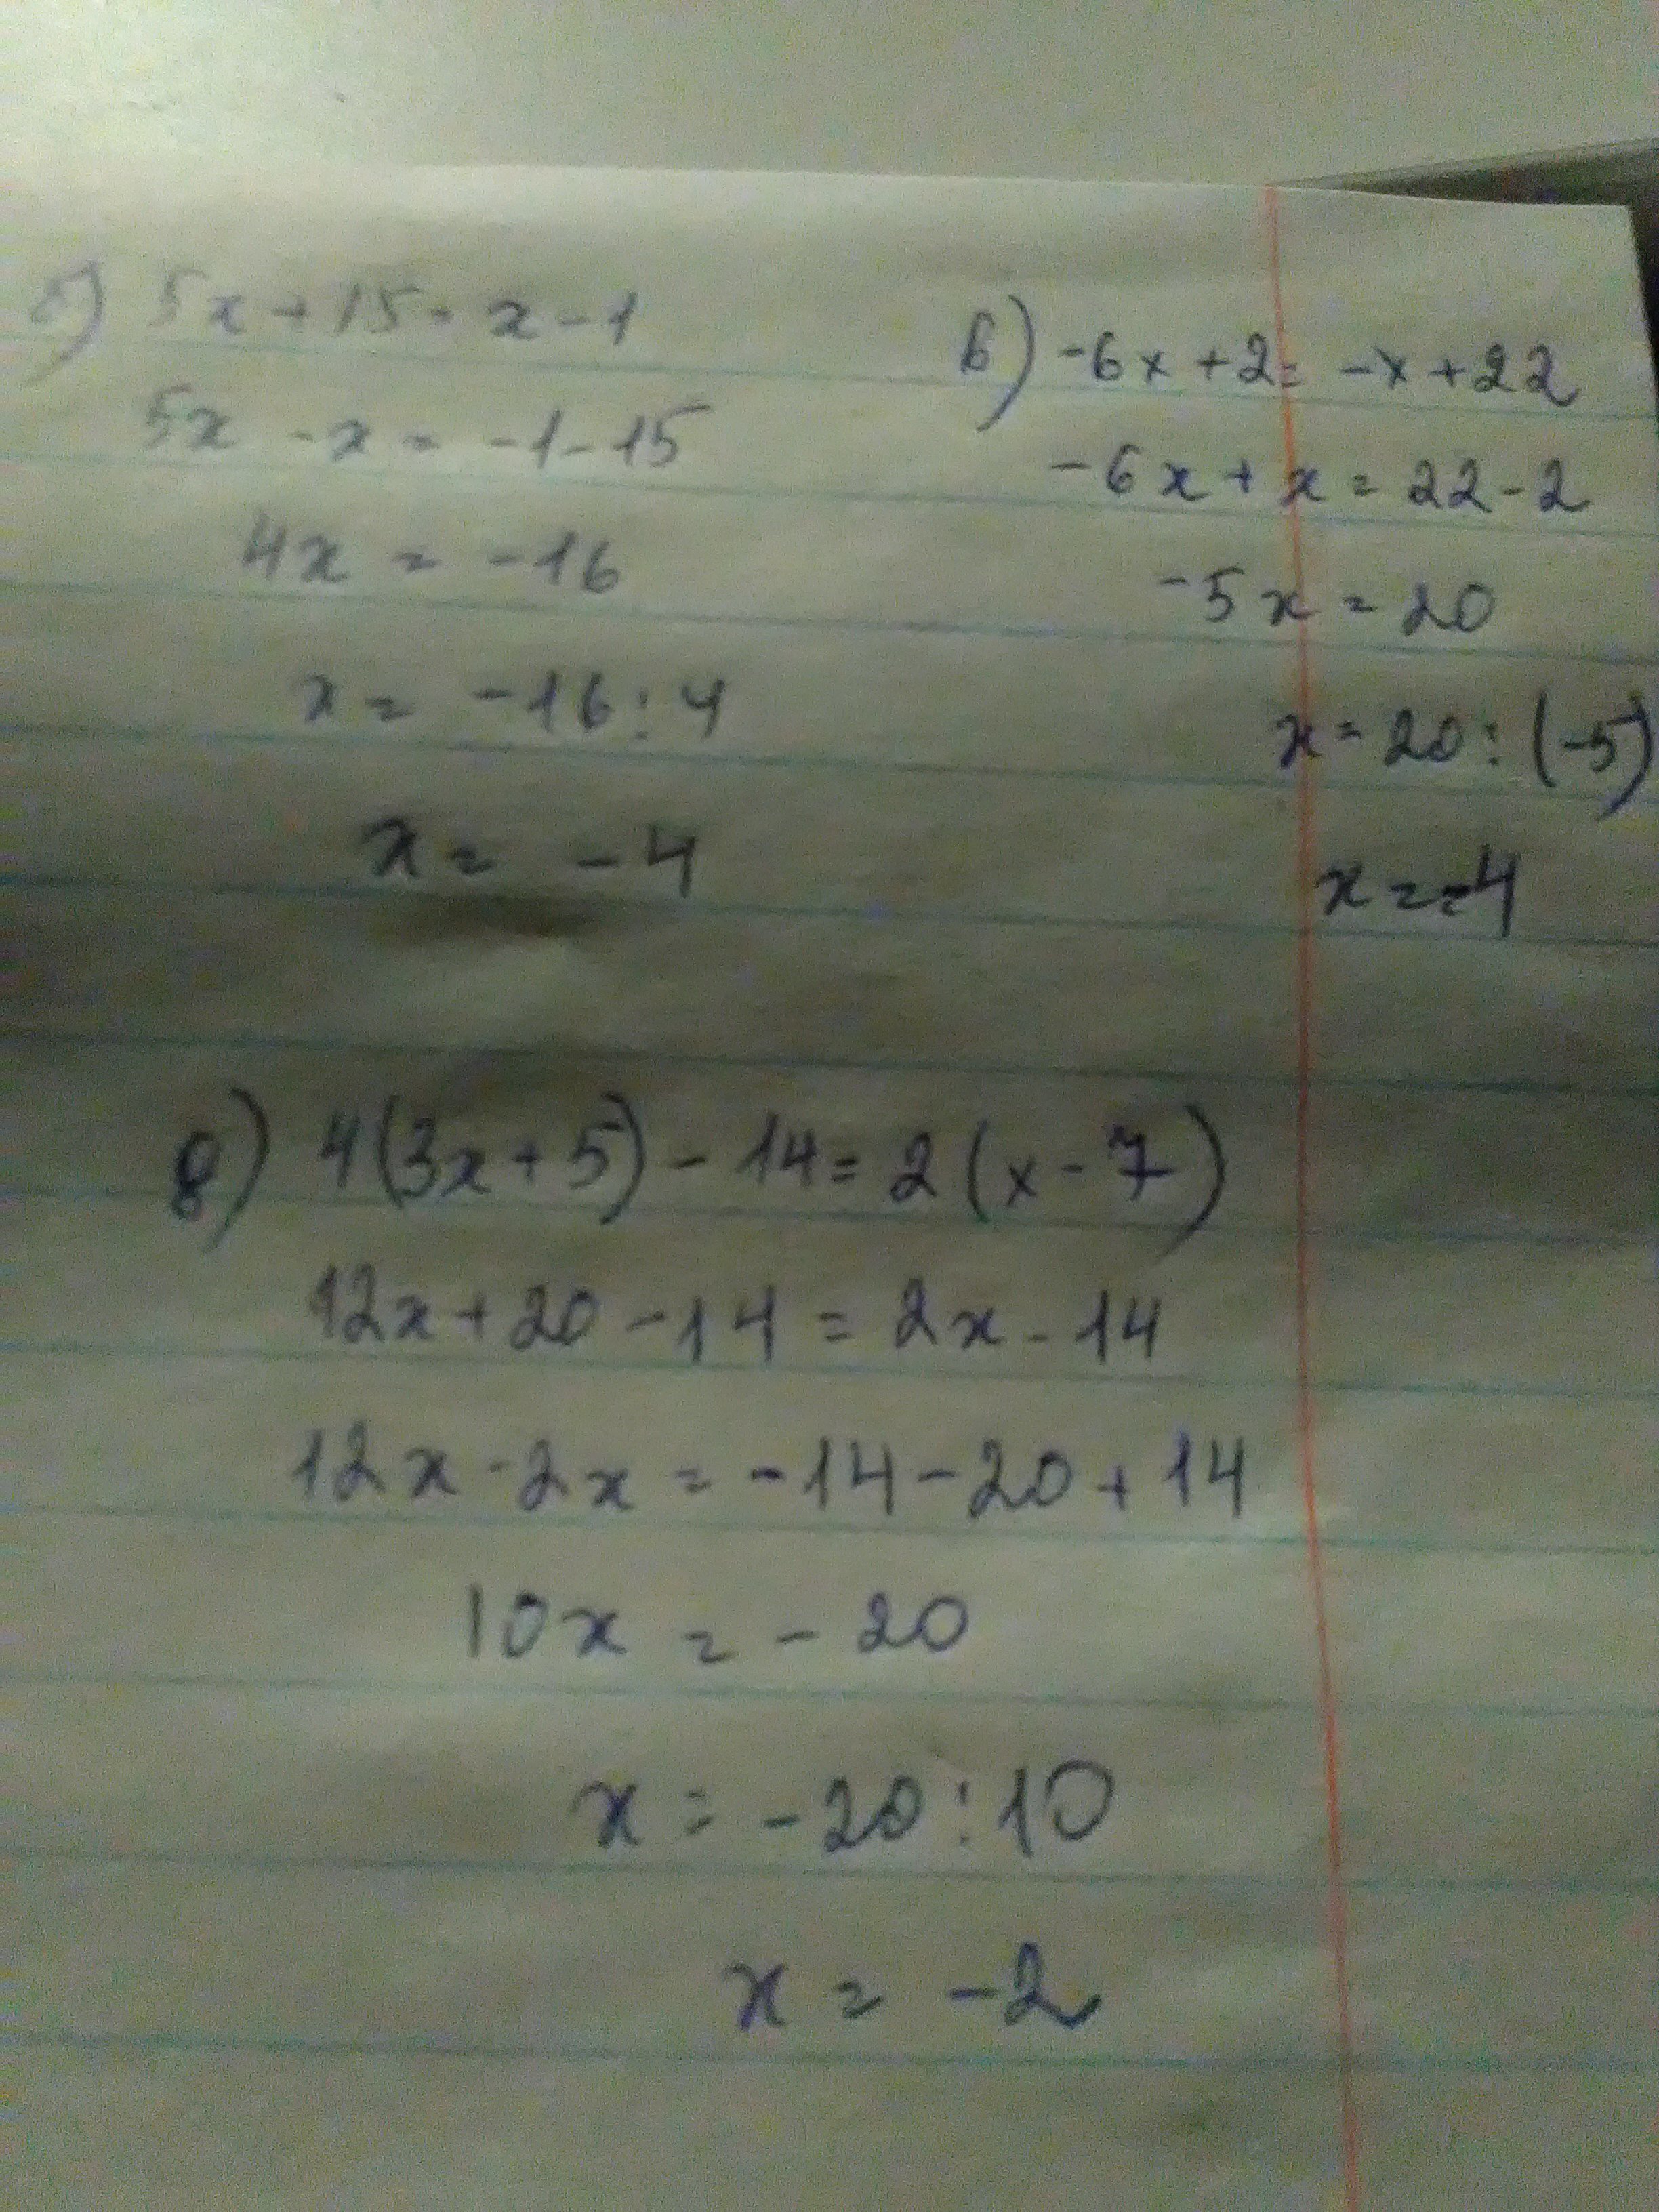 б) 5x + 15 = x - 1
5x - x = -1 - 15
4x = -16
x = -16 : 4
x = -4
в) -6x + 2 = -x + 22
-6x + x = 22 - 2
-5x = 20
x = 20 : (-5)
x = -4
8) 4(3x + 5) - 14 = 2(x - 7)
12x + 20 - 14 = 2x - 14
12x - 2x = -14 - 20 + 14
10x = -20
x = -20 : 10
x = -2